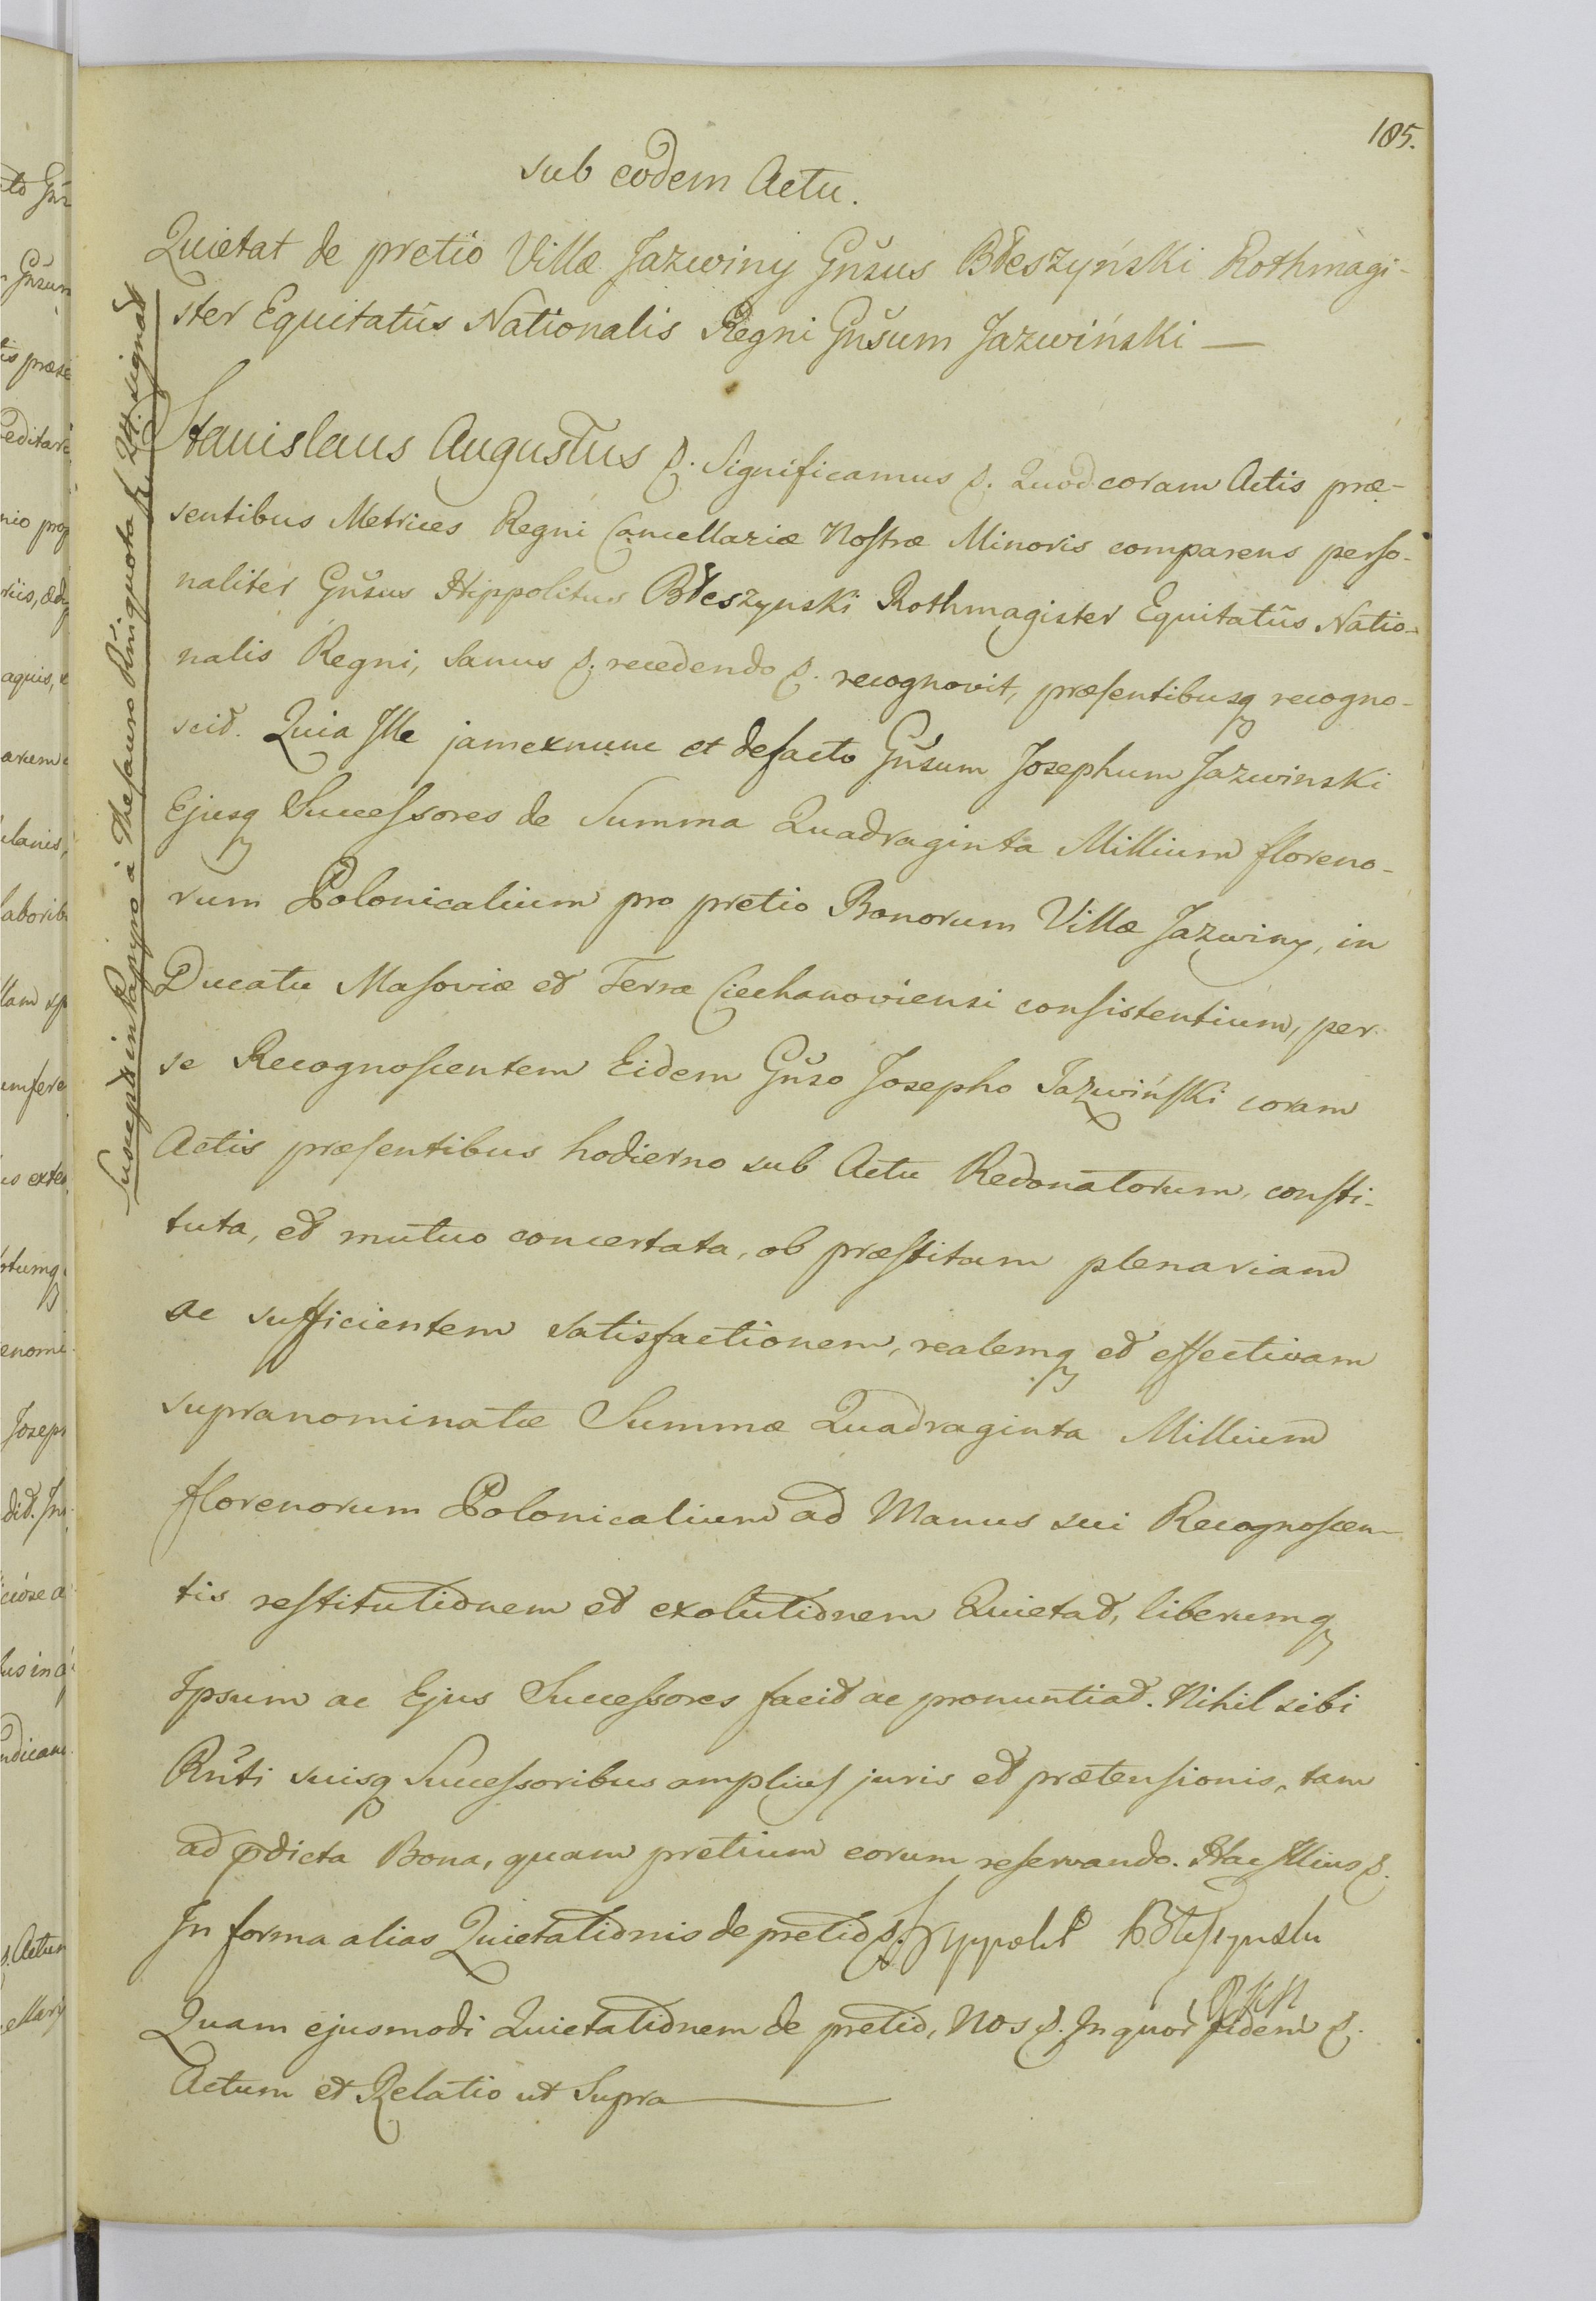 185.
sub eodem Actu.
Quietat de pretio Villæ Jazwiny Gnsus Błeszyński Rothmagi-
ster Equitatûs Nationalis Regni Gnsum Jazwiński —
Stanislaus Augustus &. Significamus &. Quod coram Actis præ-
sentibus Metrices Regni Cancellariæ Nostræ Minoris comparens perso-
naliter Gnsus Hippolitus Błeszynski Rothmagister Equitatûs Natio-
nalis Regni, Sanus &. recedendo &. recognovit, præsentibusq recogno-
scit. Quia Ille jamexnunc et defacto Gnsum Josephum Jazwinski
Ejusq Successores de Summa Quadraginta Millium floreno-
rum Polonicalium pro pretio Bonorum Villæ Jazwiny, in
Ducatu Masoviæ et Terra Ciechanoviensi consistentium, per
se Recognoscentem Eidem Gnso Josepho Jazwiński coram
Actis præsentibus hodierno sub Actu Redonatorum, consti-
tuta, et mutuo concertata, ob præstitam plenariam
ac sufficientem satisfactionem, realemq et effectivam
supranominatæ Summæ Quadraginta Millium
florenorum Polonicalium ad Manus sui Recognoscen-
tis restitutionem et exolutionem Quietat, liberumq
Ipsum ac Ejus Successores facit ac pronuntiat. Nihil sibi
Rnti suisq Successoribus amplius juris et prætensionis, tam
ad pdicta Bona, quam pretium eorum reservando. Hac Illius &.
In forma alias Quietationis de pretio &. Hyppolit Błeszynski
RKN
Quam ejusmodi Quietationem de pretio, Nos &. In quor fidem &.
Actum et Relatio ut Supra
Suscepts in Papyro à Thesauro Rni quota fl. 24. signat